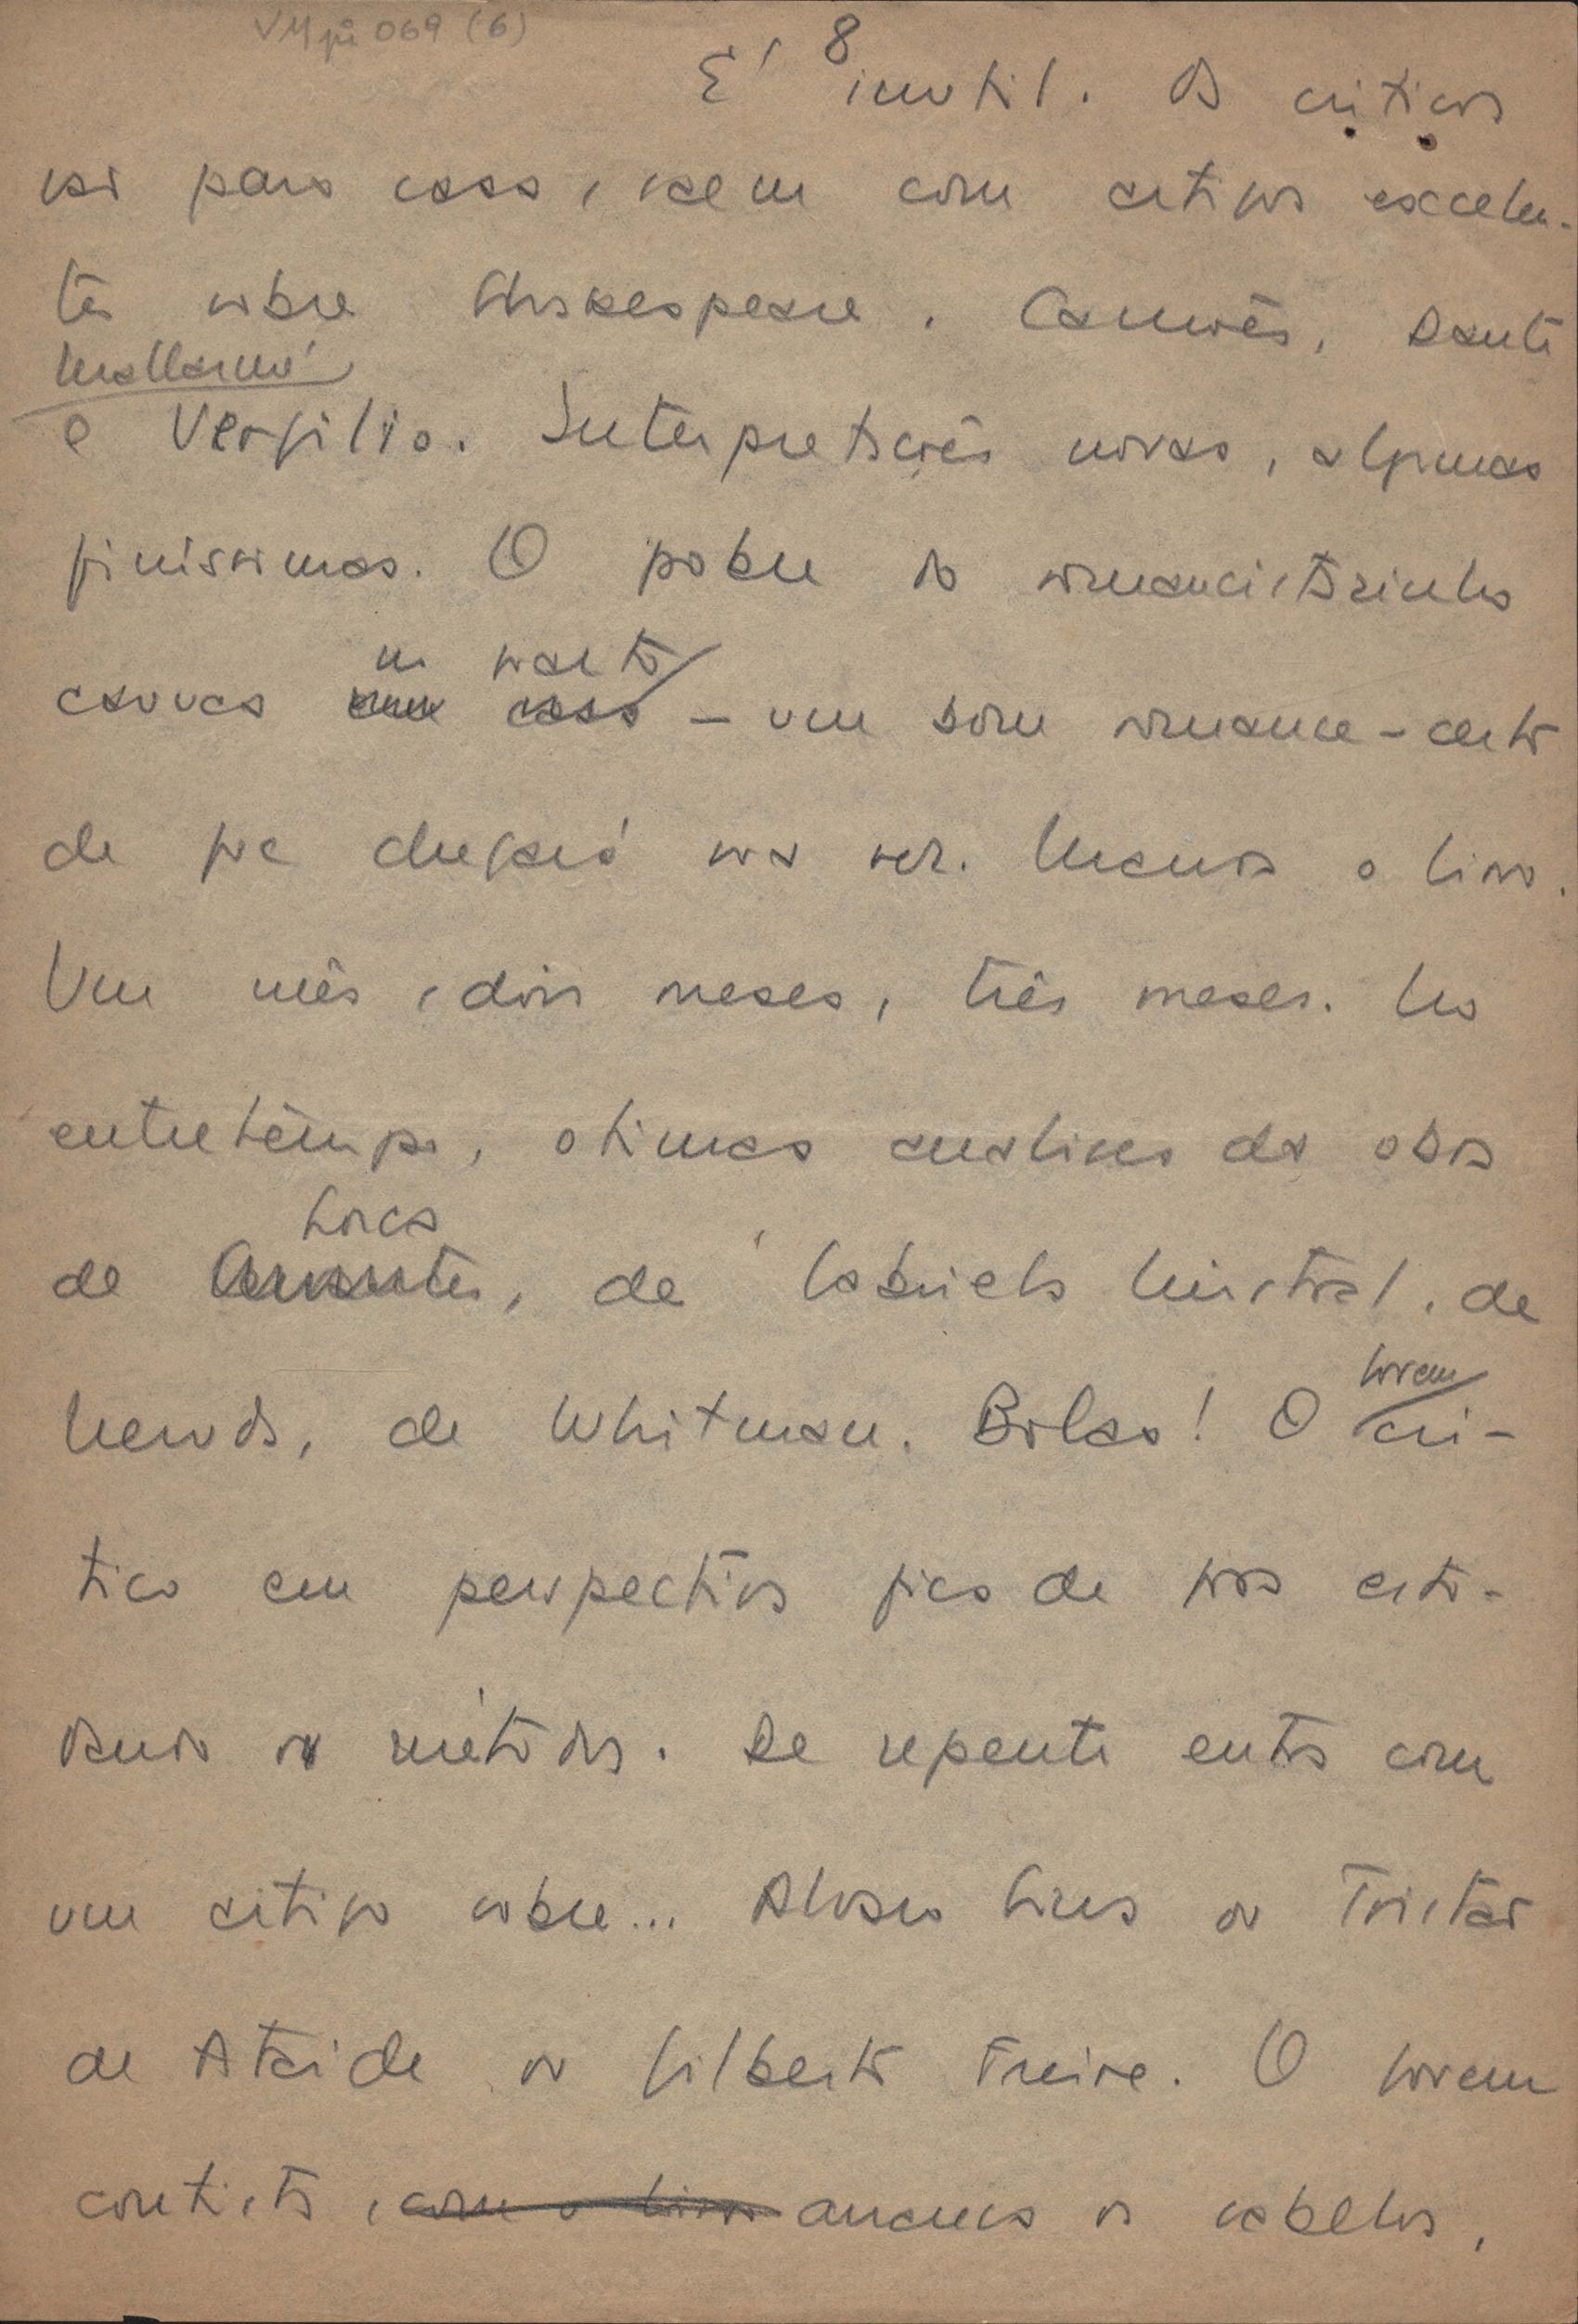 VM pi 069 (6)
8
E' inutil. O critico
vai para casa, vem com artigos excelen-
tes sobre Shakespeare, Camões, Dante
Mallarmé
e Vergilio. Interpretações novas, algumas
finissimas. O pobre do romancistazinho
no parto
cavuca num caso – um bom romance – certo
de que chegará sua vez. Manda o livro.
Um mês, dois meses, três meses. No
entretempo, otimas analises da obra
de Cervantes, de Gabriela Mistral, de
Lorca
Neruda, de Whitman. Bolas! O cri-
jovem
tico em perspectiva fica de fora esto-
ou métodos. De repente entra com
um artigo sobre... Alvaro Lins ou Tristão
de Ataide ou Gilberto Freire. O jovem
contista, com o livro arranca os cabelos,